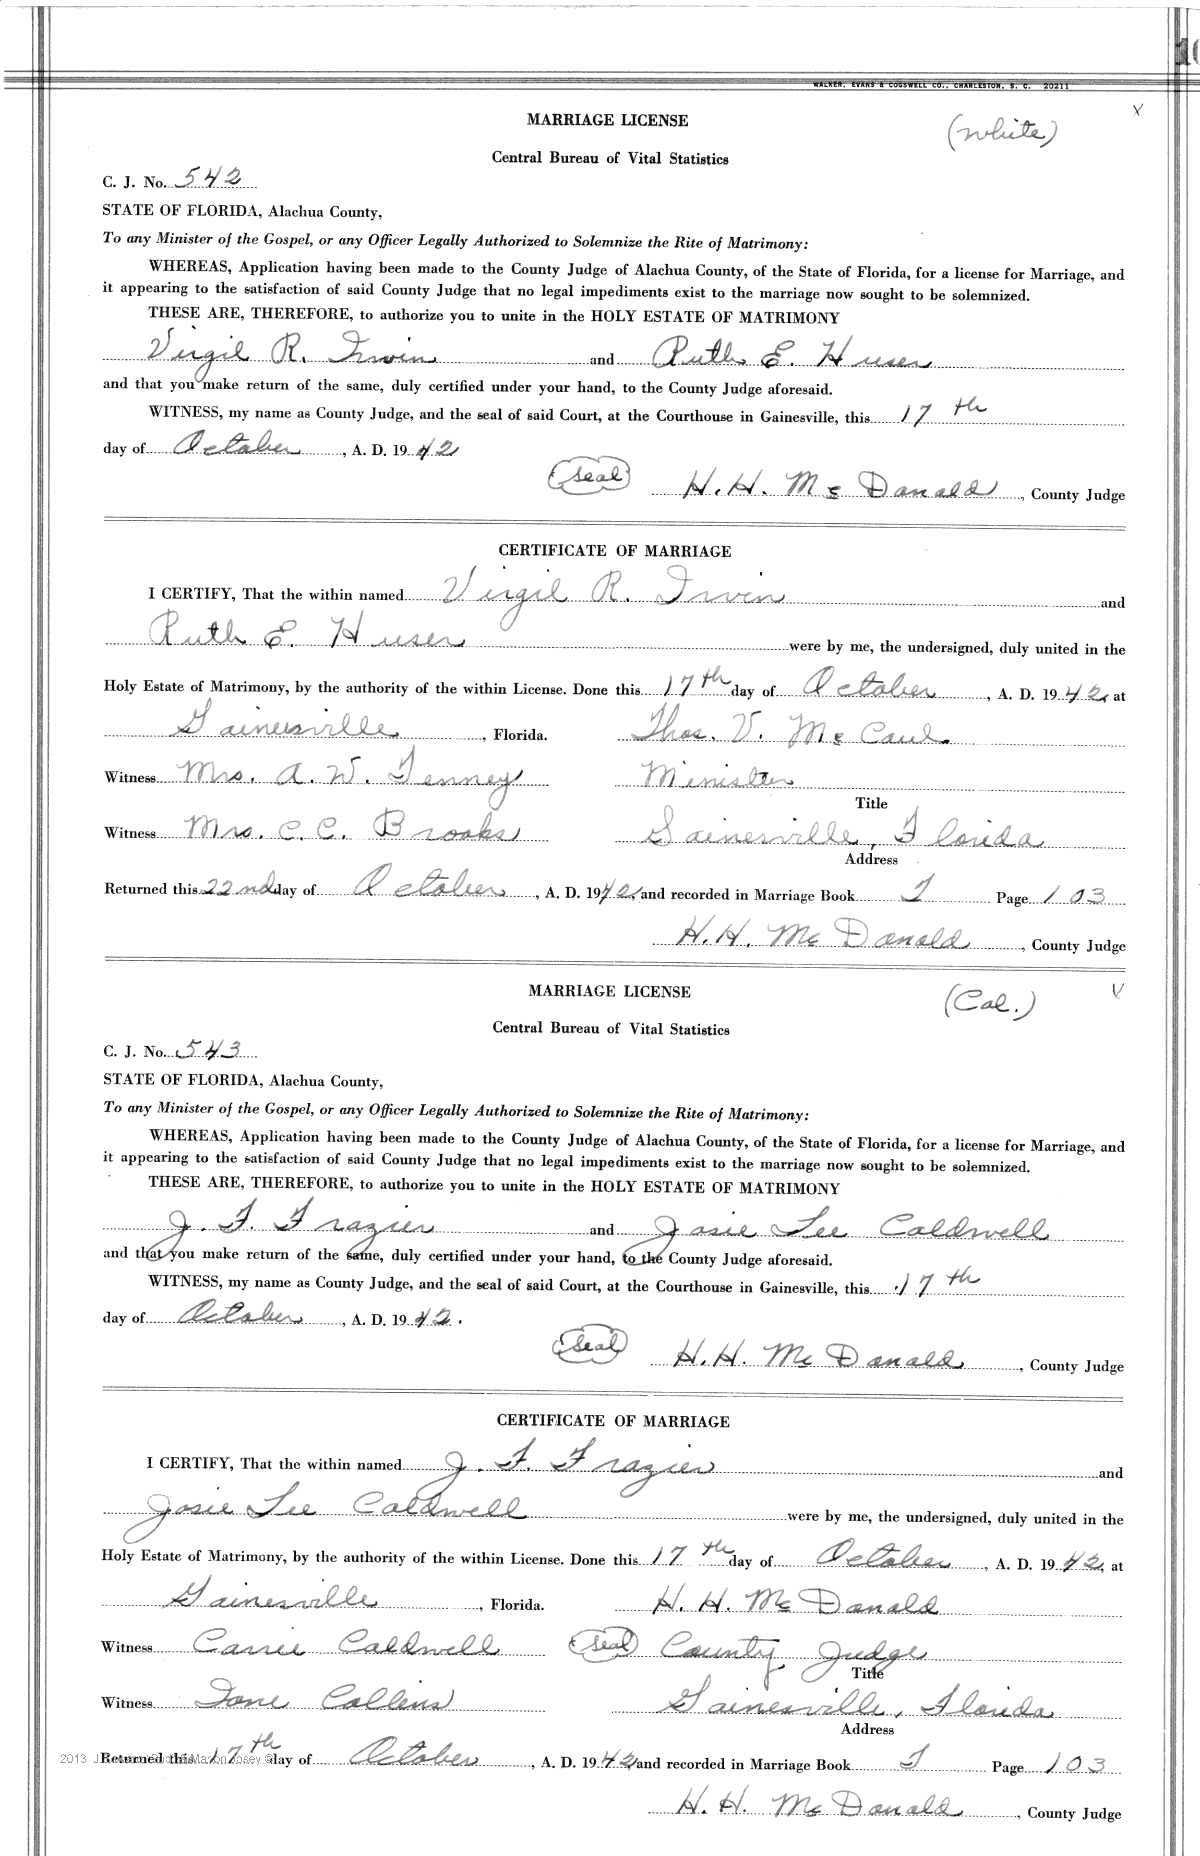 10
WALKER, EVANS & COGSWELL CO., CHARLESTON, S. C. 20211
MARRIAGE LICENSE (white) x
Central Bureau of Vital Statistics
C. J. No. 542
STATE OF FLORIDA, Alachua County,
To any Minister of the Gospel, or any Officer Legally Authorized to Solemnize the Rite of Matrimony:
WHEREAS, Application having been made to the County Judge of Alachua County, of the State of Florida, for a license for Marriage, and
it appearing to the satisfaction of said County Judge that no legal impediments exist to the marriage now sought to be solemnized.
THESE ARE, THEREFORE, to authorize you to unite in the HOLY ESTATE OF MATRIMONY
Virgil R. Irwin and Ruth E. Huser
and that you make return of the same, duly certified under your hand, to the County Judge aforesaid.
WITNESS, my name as County Judge, and the seal of said Court, at the Courthouse in Gainesville, this 17th
day of October, A. D. 1942
(seal) H. H. McDonald, County Judge
CERTIFICATE OF MARRIAGE
I CERTIFY, That the within named Virgil R. Irvin and
Ruth E. Huser were by me, the undersigned, duly united in the
Holy Estate of Matrimony, by the authority of the within License. Done this 17th day of October, A. D. 1942, at
Gainesville, Florida. Thos. V. McCaul
Witness Mrs. A. W. Tenney Minister
Title
Witness Mrs. C. C. Brooks Gainesville, Florida
Address
Returned this 22nd day of October, A. D. 1942, and recorded in Marriage Book Page 103
H. H. McDonald, County Judge
MARRIAGE LICENSE (Col.)
Central Bureau of Vital Statistics
C. J. No. 543
STATE OF FLORIDA, Alachua County,
To any Minister of the Gospel, or any Officer Legally Authorized to Solemnize the Rite of Matrimony:
WHEREAS, Application having been made to the County Judge of Alachua County, of the State of Florida, for a license for Marriage, and
it appearing to the satisfaction of said County Judge that no legal impediments exist to the marriage now sought to be solemnized.
THESE ARE, THEREFORE, to authorize you to unite in the HOLY ESTATE OF MATRIMONY
J. F. Frazier and Josie Lee Caldwell
and that you make return of the same, duly certified under your hand, to the County Judge aforesaid.
WITNESS, my name as County Judge, and the seal of said Court, at the Courthouse in Gainesville, this 17th
day of October, A. D. 1942.
(seal) H. H. McDonald, County Judge
CERTIFICATE OF MARRIAGE
I CERTIFY, That the within named J. F. Frazier and
Josie Lee Caldwell were by me, the undersigned, duly united in the
Holy Estate of Matrimony, by the authority of the within License. Done this 17th day of October, A. D. 1942, at
Gainesville, Florida. H. H. McDonald
Witness Carrie Caldwell (seal) County Judge
Title
Witness Ione Collins Gainesville, Florida
Address
Returned this 17th day of October, A. D. 1942 and recorded in Marriage Book Page 103
H. H. McDonald, County Judge